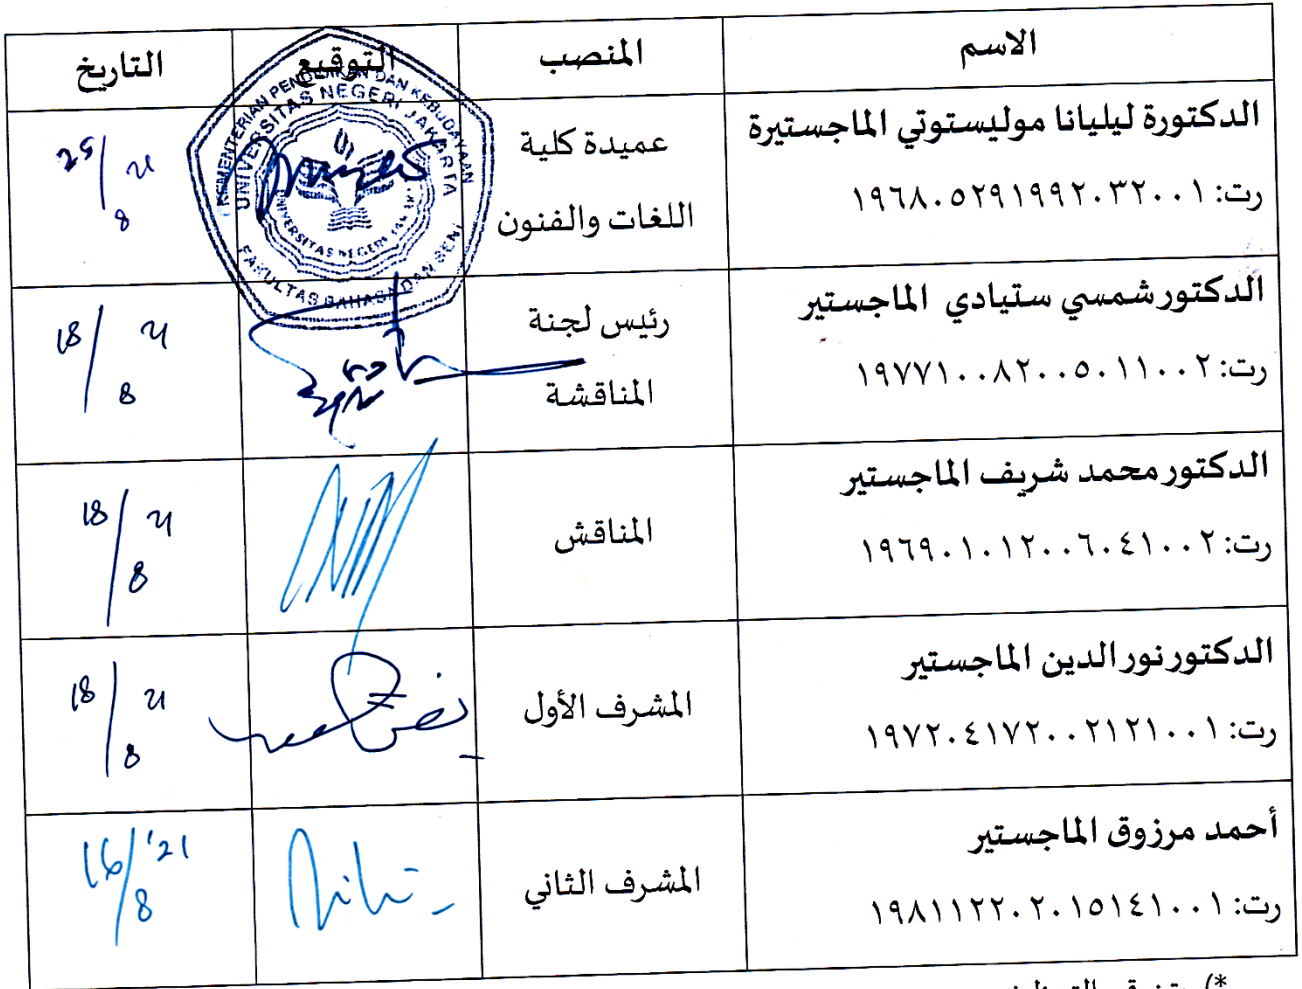 الاسم
المنصب
التوقيع
التاريخ
الدكتورة ليليانا موليستوتي الماجستيرة
رت: ١٩٦٨٠٥٢٩١٩٩٢٠٣٢٠٠١
عميدة كلية
اللغات والفنون
KEMENTERIAN PENDIDIKAN DAN KEBUDAYAAN
UNIVERSITAS NEGERI JAKARTA
FAKULTAS BAHASA DAN SENI
25/8 21
الدكتور شمسي ستيادي الماجستير
رت: ١٩٧٧١٠٠٨٢٠٠٥٠١١٠٠٢
رئيس لجنة
المناقشة
18/8 21
الدكتور محمد شريف الماجستير
رت: ١٩٦٩٠١٠١٢٠٠٦٠٤١٠٠٢
المناقش
18/8 21
الدكتور نور الدين الماجستير
رت: ١٩٧٢٠٤١٧٢٠٠٢١٢١٠٠١
المشرف الأول
18/8 21
أحمد مرزوق الماجستير
رت: ١٩٨١١٢٢٠٢٠١٥١٤١٠٠١
المشرف الثاني
16/8 '21